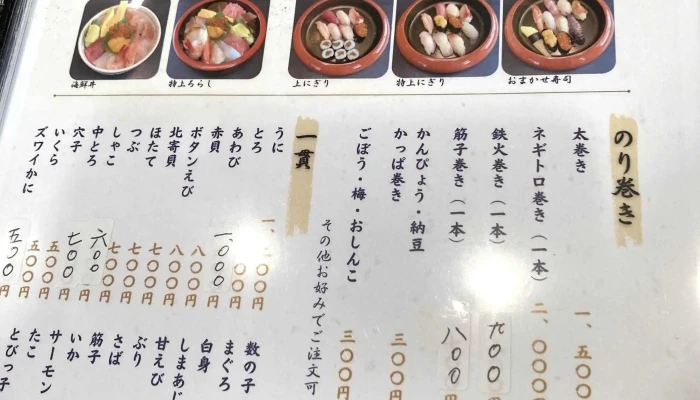 海鮮丼
特上ちらし
上にぎり
特上にぎり
おまかせ寿司
のり巻き
太巻き
一、五〇〇
ネギトロ巻き（一本）
二、〇〇〇円
鉄火巻き（一本）
九〇〇
筋子巻き（一本）
八〇〇
かんぴょう・納豆
かっぱ巻き
三〇〇円
ごぼう・梅・おしんこ
三〇〇円
その他お好みでご注文可
一貫
うに
とろ
あわび
赤貝
一、〇〇〇
ボタンえび
八〇〇円
北寄貝
八〇〇円
ほたて
七〇〇円
つぶ
七〇〇円
しゃこ
七〇〇円
中とろ
六〇〇
穴子
七〇〇
いくら
五〇〇円
ズワイかに
五〇〇円
数の子
まぐろ
白身
しまあじ
甘えび
ぶり
さば
筋子
いか
サーモン
たこ
とびっ子